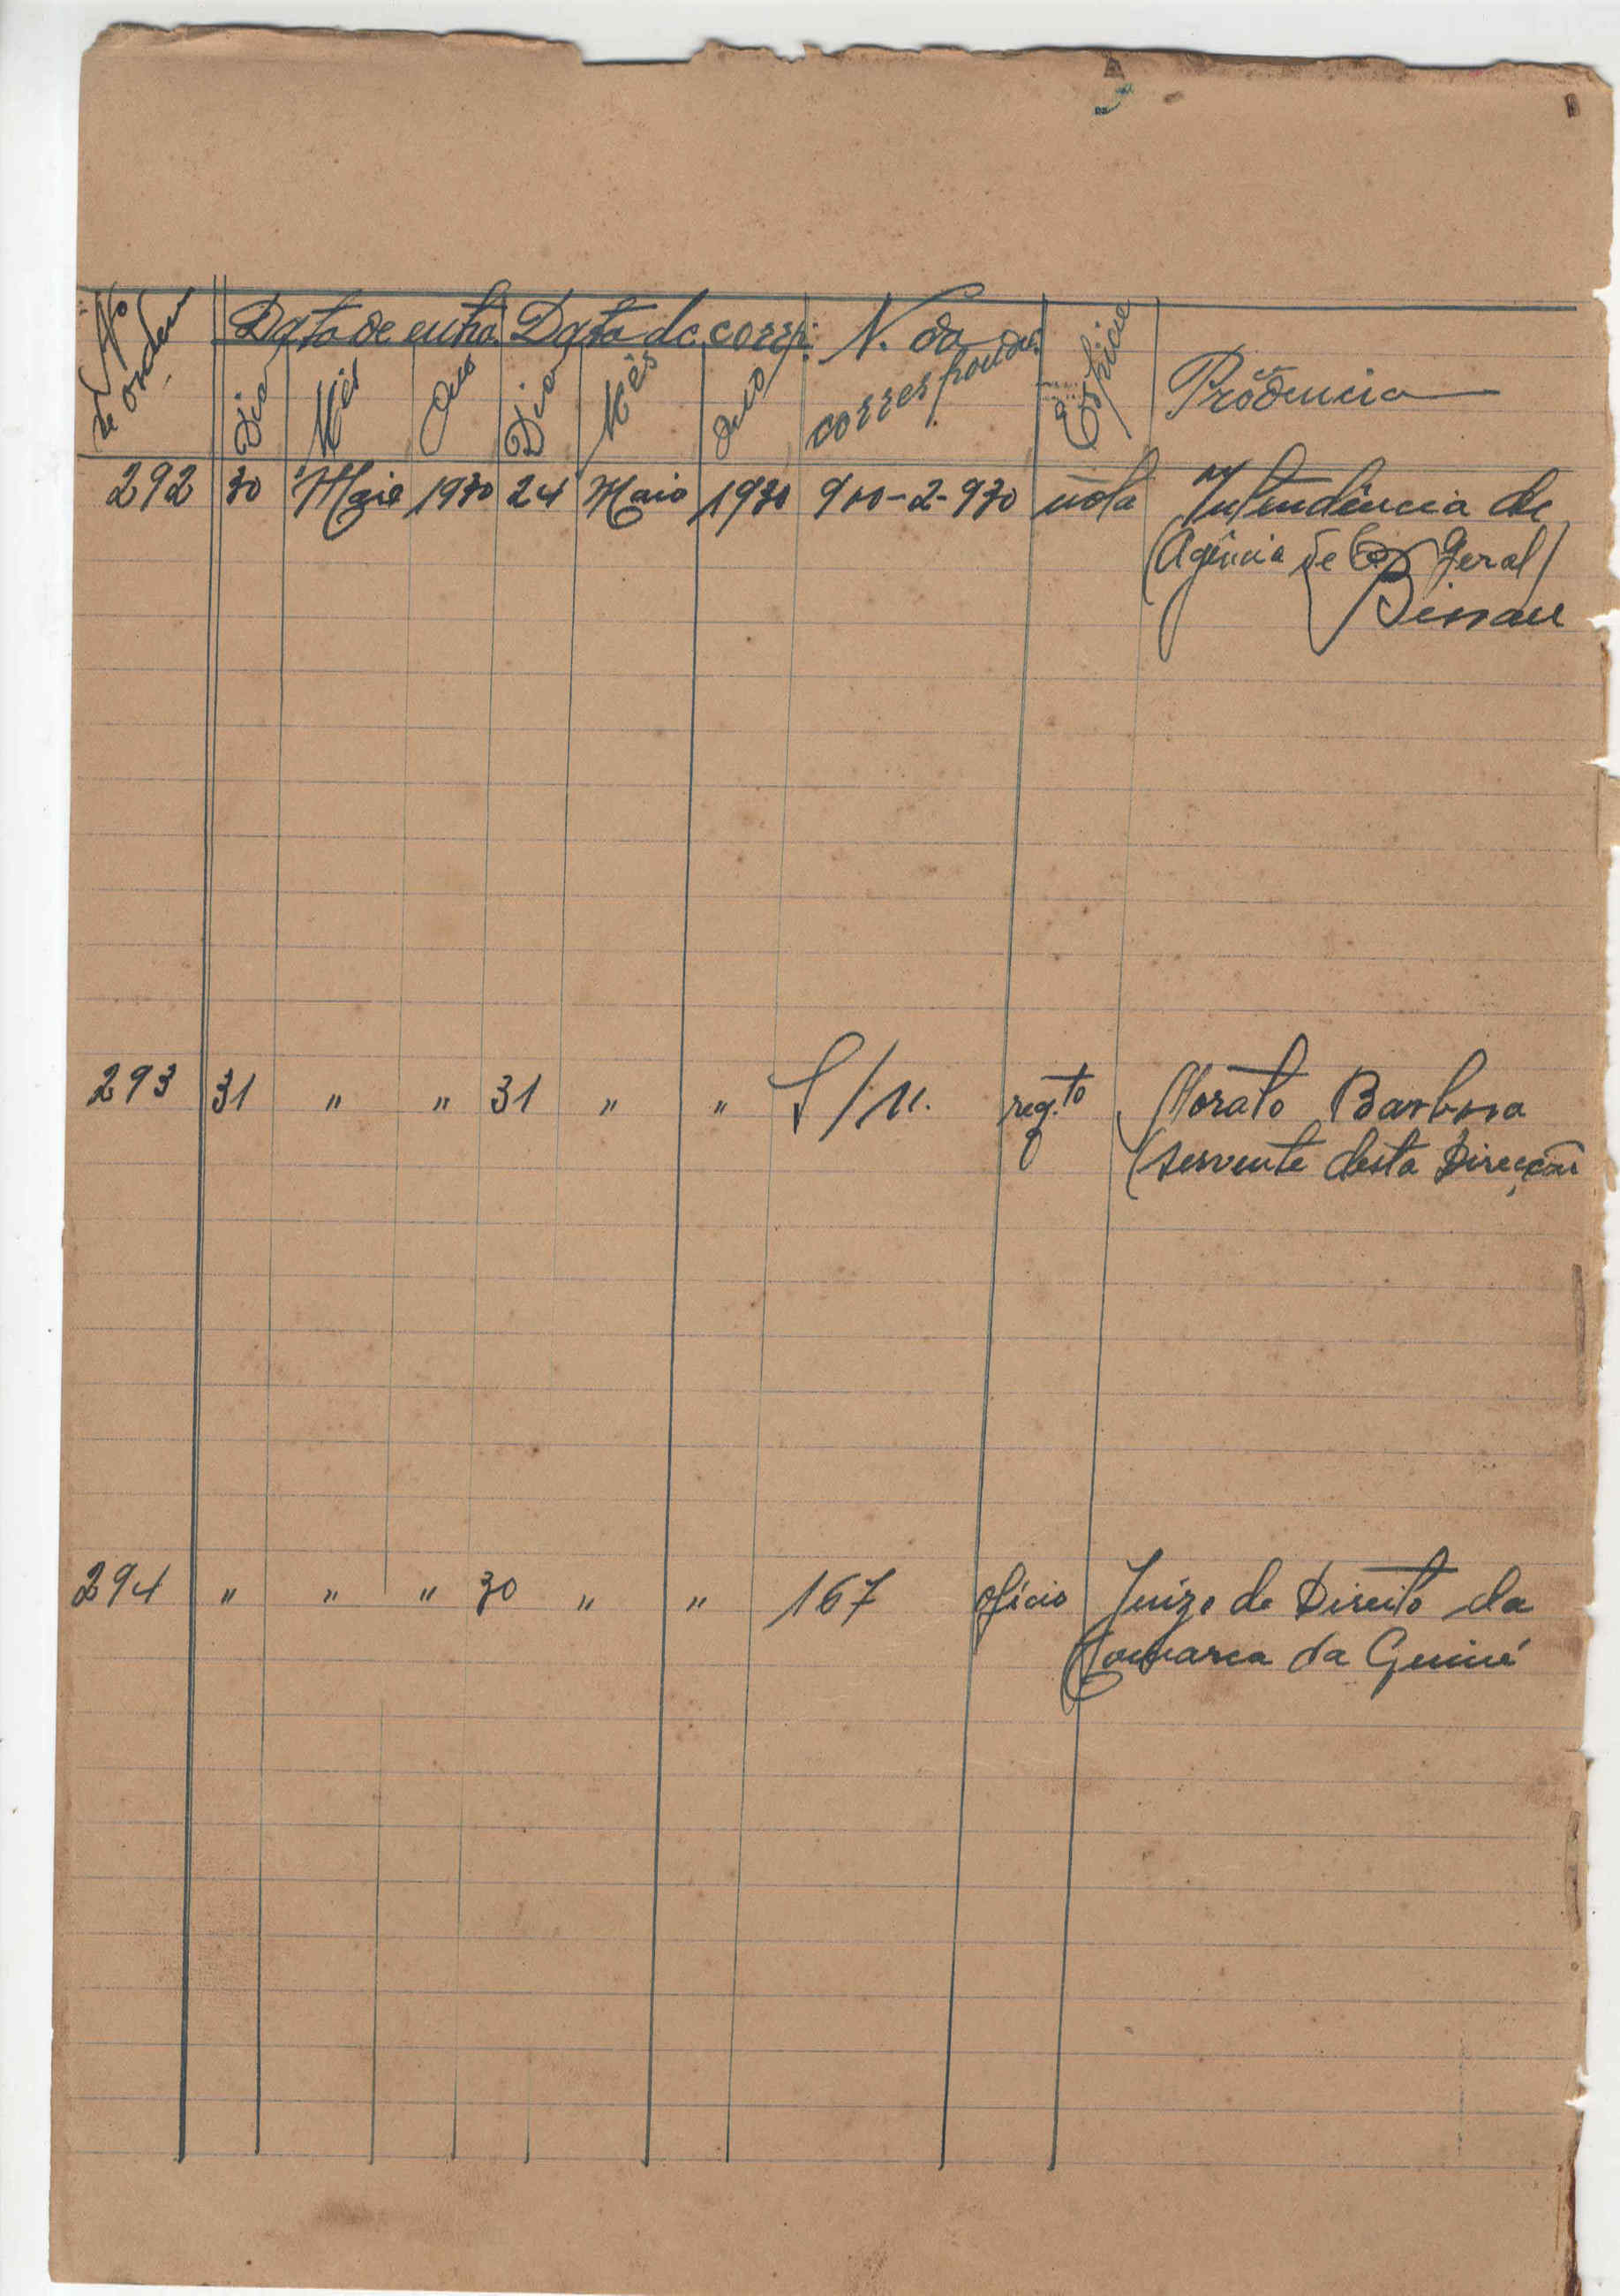 Nº de ordem Data de entra. Data da corrp. N. da correspondca. Espécie Procedencia
Dia Mês Ano Dia Mês Ano
292 30 Maio 1930 24 Maio 1930 900-2-930 nota Intendência de
(Agência de Geral)
Bissau
293 31 " " 31 " " S/N. reqto Barbosa
(servente desta Direcção
294 " " " 30 " " 167 ofício Juizo de Direito da
Comarca da Guiné